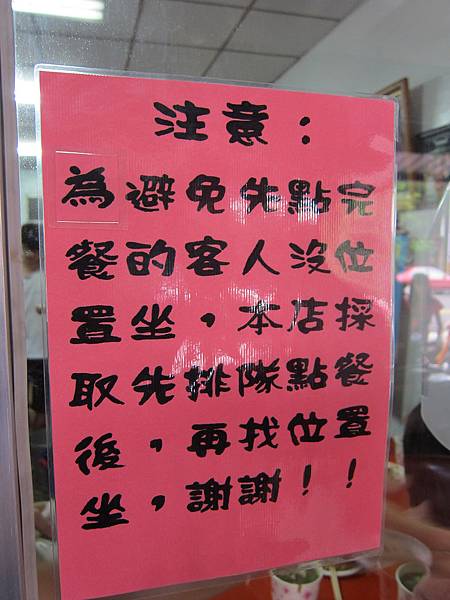 注意：
為避免先點完
餐的客人沒位
置坐，本店採
取先排隊點餐
後，再找位置
坐，謝謝！！